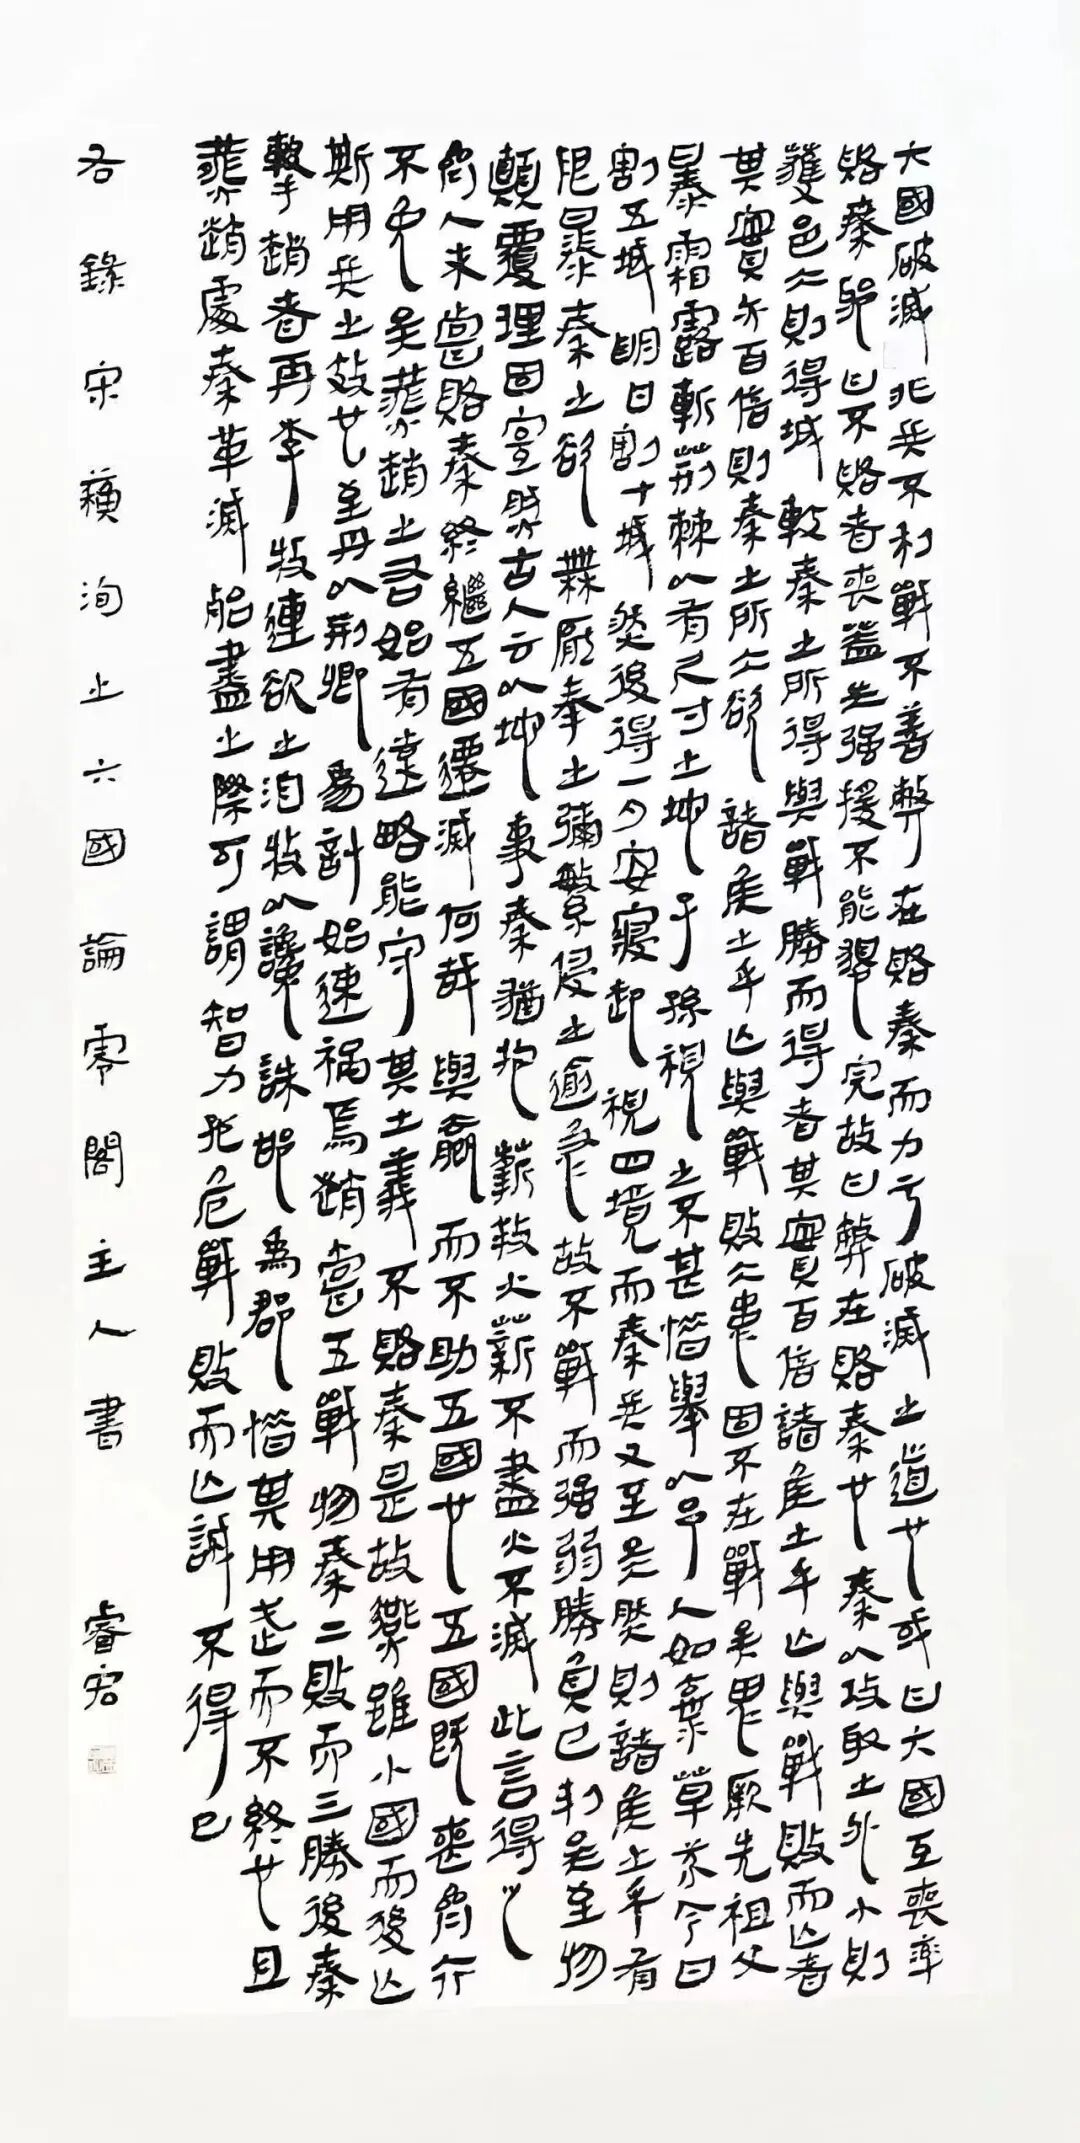 六國破滅非兵不利戰不善弊在賂秦而力亏破滅之道也或曰六國互喪率
賂秦耶曰不賂者喪蓋失强援不能獨完故曰弊在賂秦也秦以攻取之外小則
獲邑大則得城較秦之所得與戰勝而得者其實百倍諸侯之所亡與戰敗而亡者
其實亦百倍則秦之所大欲諸侯之所亡與戰敗大患固不在戰矣思厥先祖父
暴霜露斬荊棘以有尺寸之地子孫視之不甚惜舉以予人如棄草芥今日
割五城明日割十城然後得一夕安寢起視四境而秦兵又至矣然則諸侯之所有
限暴秦之欲無厭奉之彌繁侵之逾急故不戰而强弱勝負已判矣至於
顛覆理固宜然古人云以地事秦猶抱薪救火薪不盡火不滅此言得之
齊人未嘗賂秦終繼五國遷滅何哉與嬴而不助五國也五國既喪齊亦
不免矣燕趙之君始有遠略能守其土義不賂秦是故燕雖小國而後亡
斯用兵之效也至丹以荊卿為計始速禍焉趙嘗五戰於秦二敗而三勝後秦
擊趙者再李牧連卻之洎牧以讒誅邯為郡惜其用武而不終也且
燕趙處秦革滅殆盡之際可謂智力孤危戰敗而亡誠不得已
右錄宋蘇洵之六國論零閣主人書 睿宏